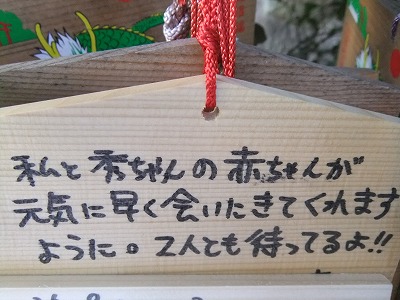 私と秀ちゃんの赤ちゃんが
元気に早く会いたきてくれます
ように。2人とも待ってるよ!!